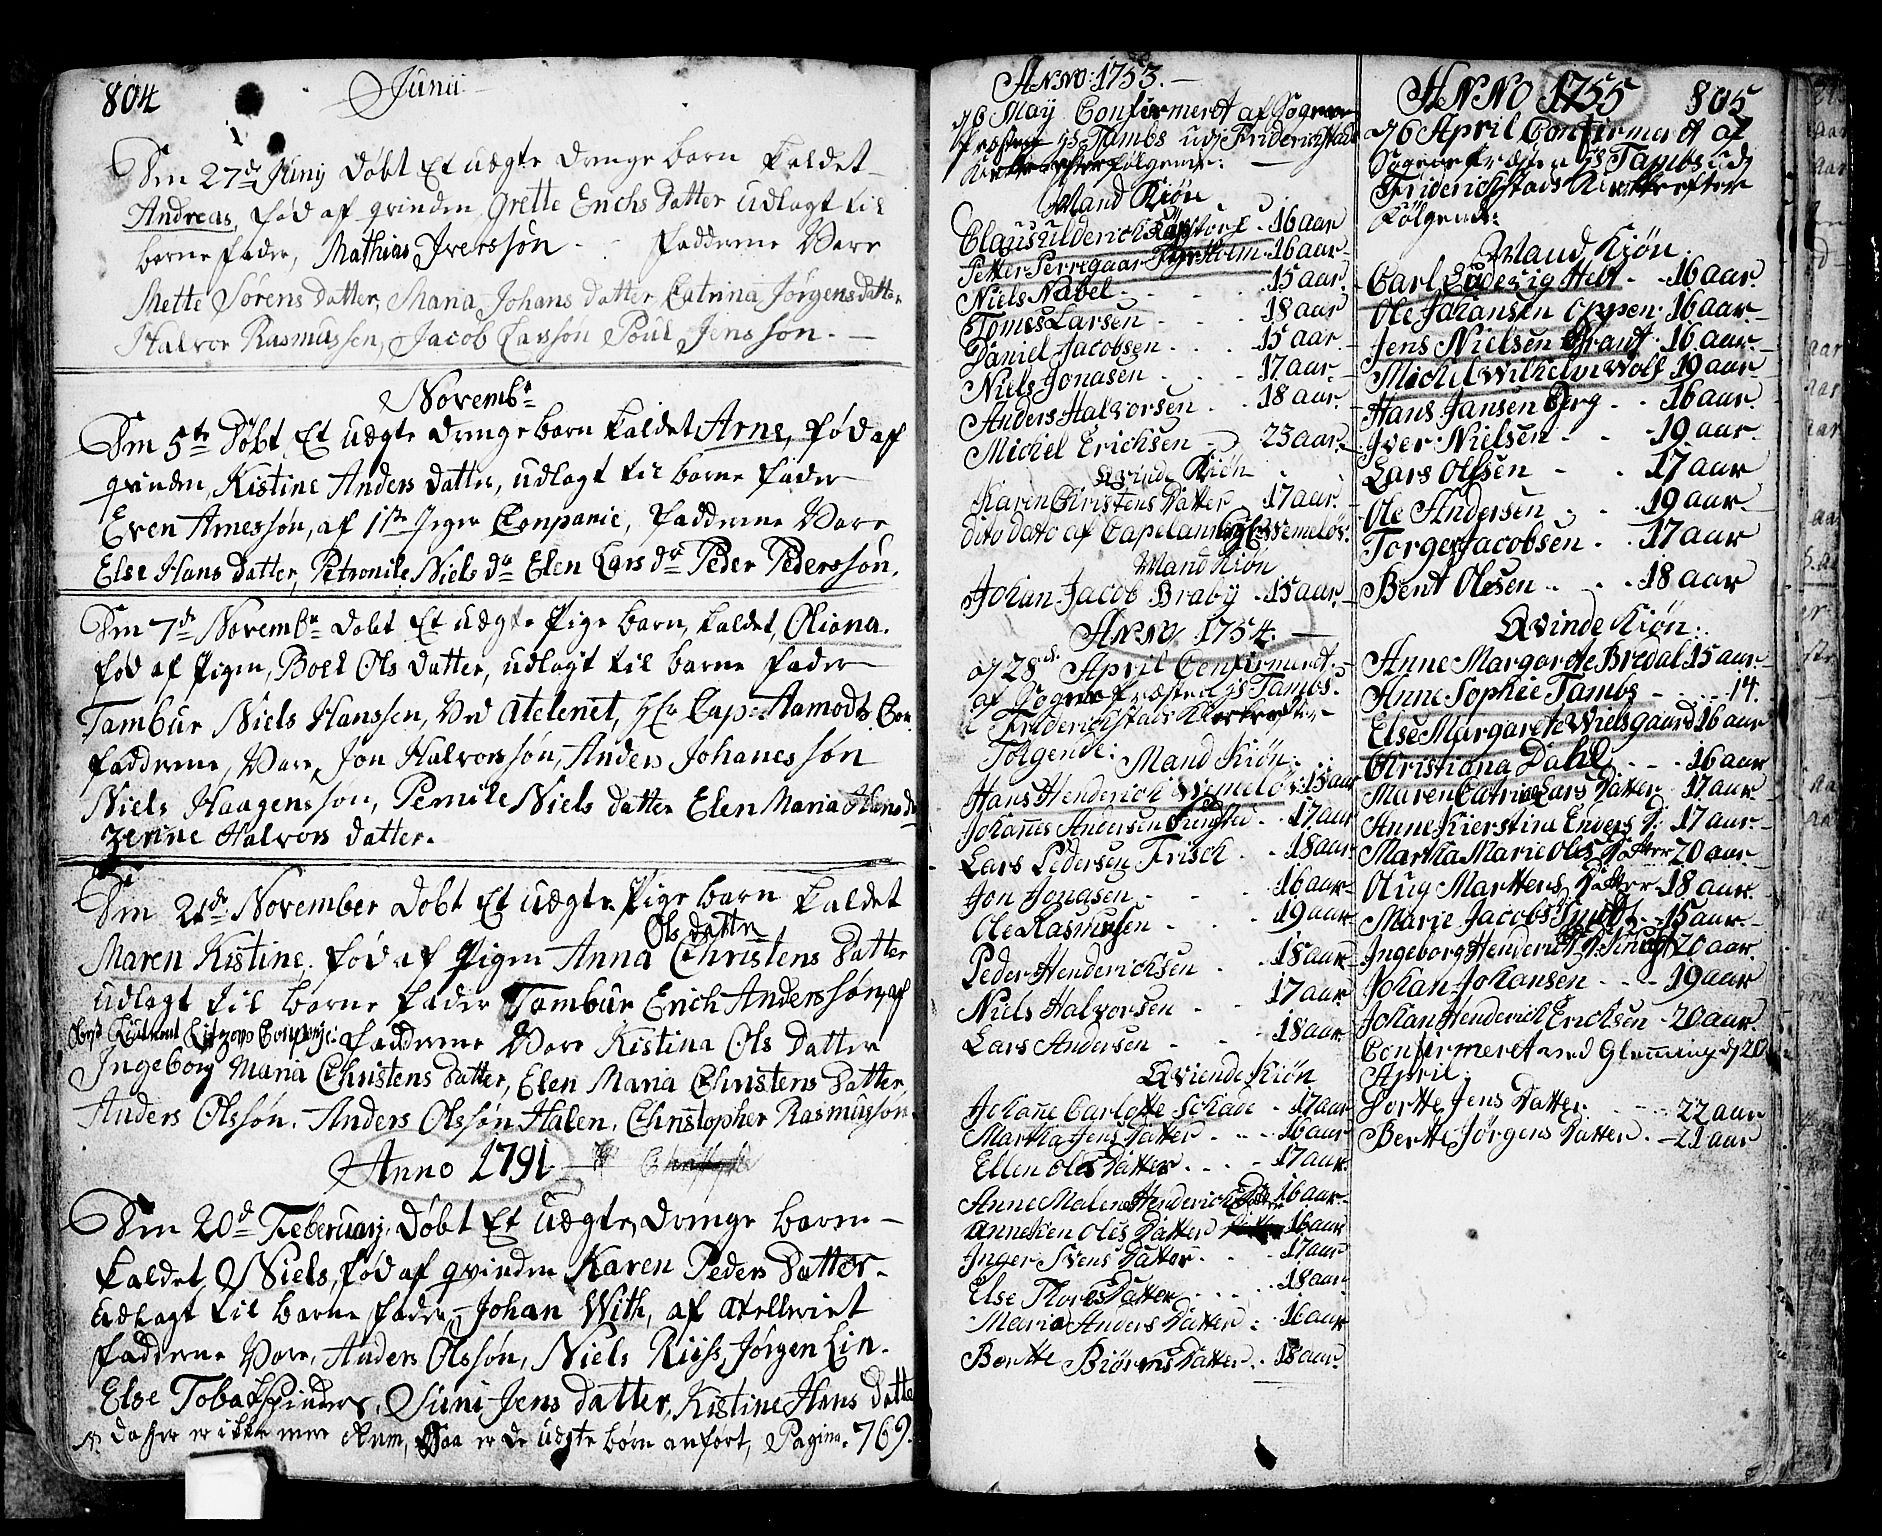 804
Junii
Den 27de Junij døbt Et uægte drenge barn kaldet
Andreas, fød af qvinden Grette Erichs datter udlagt til
barne fader, Mathias Iverssøn fadderne Vare
Mette Sørens datter, Maria Johans datter Catrina Jørgens datter
Halvor Rasmussen, Jacob Larssøn Poul Jenssøn.
Novembr
Den 5te Døbt Et uægte drenge barn kaldet Arne, fød af
qvinden, Kistine Anders datter, udlagt til barne fader
Even Arnessøn, af 1ste Jeger Compagnie, fadderne Vare
Else Hans datter, Petronile Niels dr Elen Lars dr Peder Pederssøn.
Den 7de Novembr døbt Et uægte Pige barn, kaldet, Oliana.
fød af Pigen, Boel Ols datter, udlagt til barne fader
Tambur Niels Hanssen, Ved Atelenet, Hr Cap: Aamodts Com
fadderne, Vare, Jon Halvorssøn, Anders Johanessøn
Niels Haagenssøn, Pernile Niels datter Elen Maria Hans dr
Zenne Halvors datter.
Den 21de November døbt Et uægte Pige barn kaldet
Ols datter
Maren Kistine. fød af Pigen Anna Christens datter
udlagt til barne fader Tambur Erich Anderssøn, af
Obrist Leutnant Lützows Compagni: fadderne Vare Kistina Ols datter
Ingeborg Maria Christens datter, Elen Maria Christens datter
Anders Olssøn. Anders Olssøn Halen, Christopher Rasmussøn.
Anno 1791
Den 20d February, Døbt Et Uægte, drenge barn
kaldet, Niels, fød af qvinden Karen Peders datter
udlagt til barne fader, Johan With, af
fadderne Vare, Anders Olssøn, Niels Riiss, Jørgen Lin.
Else Tobakspinders, Suni Jens datter, Kistine Hans datter
da her er ikke mere Rum, Saa er de uægte børn anført, Pagina. 769.
Anno: 1753.
d 6 May Confirmeret af Sogne
Præsten Hs Tambs udj Friderichstads
Kirke efterfølgende:
Mand Kiøn
Claus Uldderich 16 aar
Petter Perregaar 16 aar.
Niels Nabel 15 aar
Tomes Larsen 18 aar
Daniel Jacobsen 15 aar.
Niels Jonasen 17 aar.
Anders Halvorsen 18 aar.
Michel Erichsen 23 aar.
Qvinde Kiøn
Karen Christens Datter 17 aar.
dito dato af Capelan
Mand Kiøn
Johan Jacob Braby 15 aar.
Anno 1754.
d 28 April Confirmeret
af Sogne Præsten Hs Tambs.
i Friderichstads Kirke efter
Følgende: Mand Kiøn.
Hans Henderich 15 aar
Johanes Andersen 17 aar
Lars Pedersen Frisch 18 aar
Jon Jonasen 16 aar
Ole Rasmusen 19 aar
Peder Henderichsen 18 aar
Niels Halvorsen 17 aar
Lars Andersen 18 aar
Qviende Kiøn
Johane Carlotte Schade 17 aar
Martha Jens Datter 16 aar
Ellen Oles Datter 17 aar.
Anne Malena Henderichs 16 aar
Anneken Oles Datter 16 aar
Inger Svens Datter 17 aar
Else Thores Datter 18 aar
Maria Anders Datter 16 aar
Berthe Biørns Datter 18 aar.
ANNO 1755 805
d 6 April Confirmeret af
Sogne Præsten Hs Tambs udj
Friderichstads Kirke efter
følgende:
Mand Kiøn.
Carl Ludevig Helt 16 aar.
Ole Johansen Oppen 16 aar
Jens Nielsen Brant 16 aar.
Michel Wilhelm Wolf 19 aar
Hans Jansen Berg 16 aar.
Iver Nielsen 19 aar.
Lars Olssen 17 aar
Ole Andersen 19 aar
Torger Jacobsen 17 aar
Bent Olesen 18 aar
Qvinde Kiøn:
Anne Margarete Bredal 15 aar
Anne Sophie Tambs 14.
Else Margarete Nielsgaard 16 aar
Christiana Dahl 16 aar
Maren Catrine Lars Datter 17 aar.
Anne Kierstine Enders D: 17 aar.
Martha Marie Oles Datter 20 aar
Olug Martens Datter 18 aar.
Marie Jacobs 15 aar.
Ingeborg Henderichs 20 aar.
Johan Johansen 19 aar
Johan Henderich Ericksen 20 aar.
Confirmeret ved Glemming d 20
April.
Dorthe Jens Datter 22 aar
Berthe Jørgens Datter 21 aar